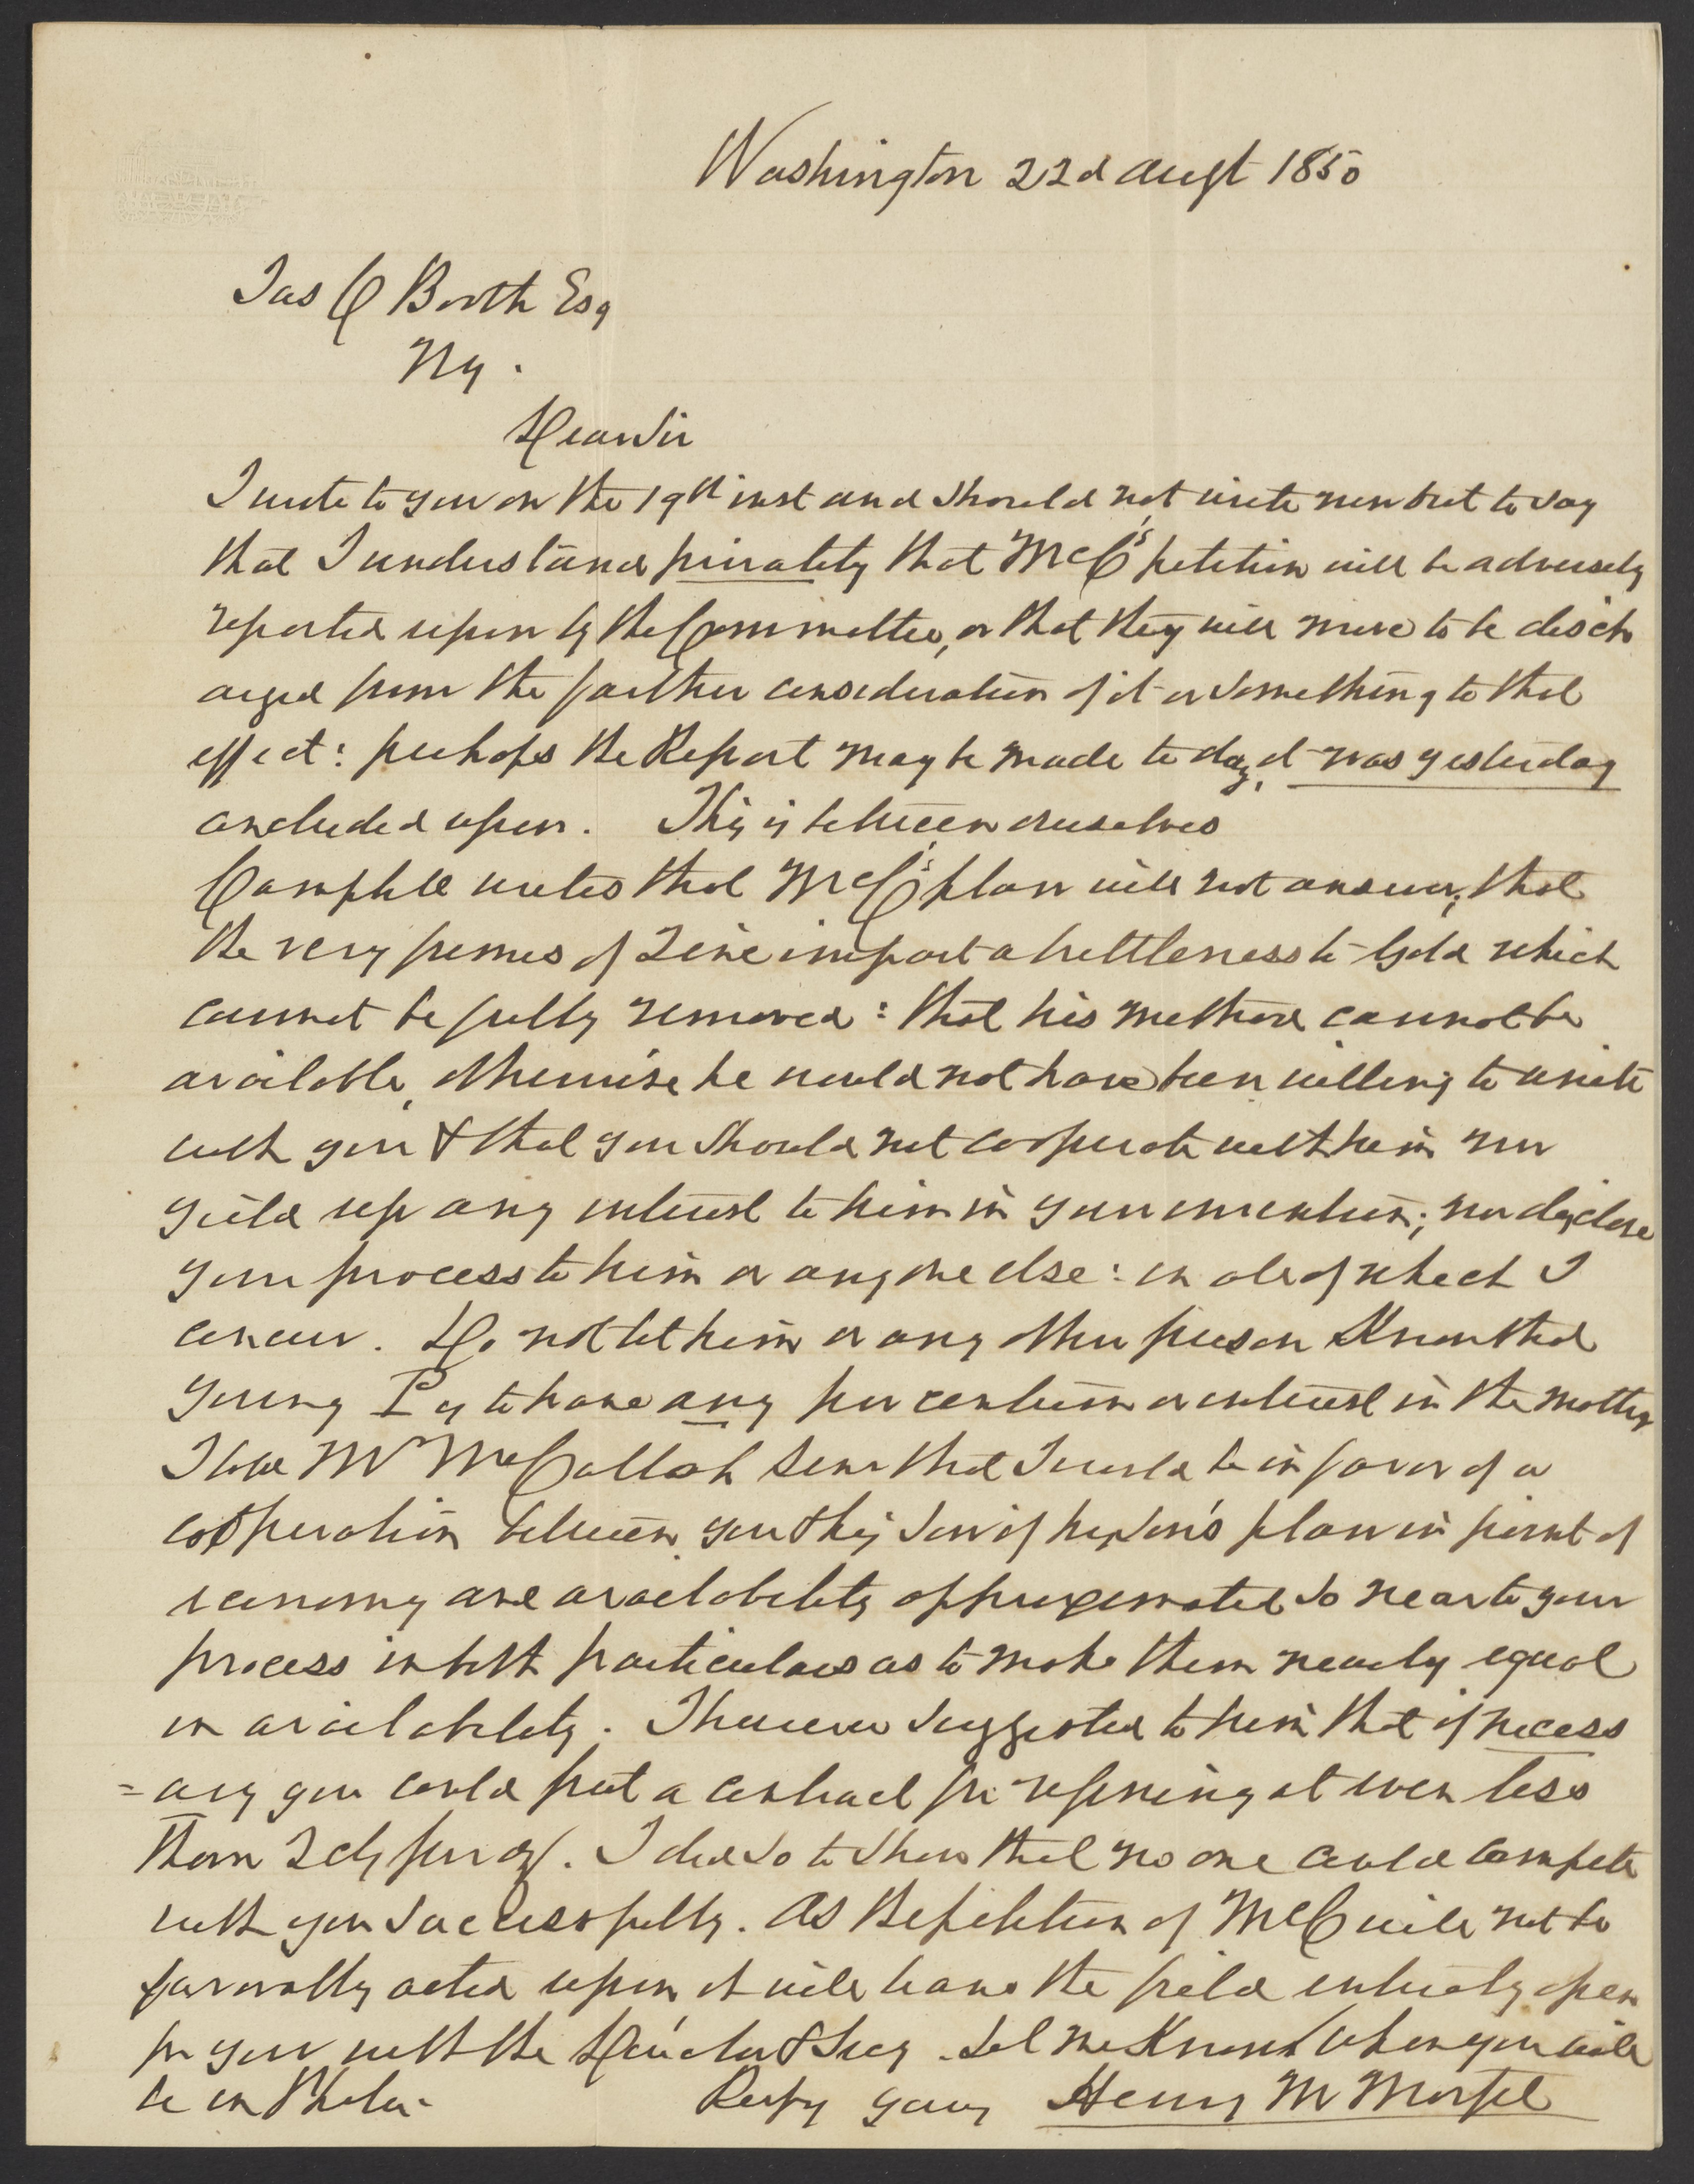 Washington 22d Augt 1850
Jas C Booth Esq
Ny.
Dear Sir
I wrote to you on the 19th inst and should not write now but to say
that I understand privately that McC's petition will be adversely
reported upon by the Committee, or that they will move to be disch
arged from the further consideration of it or something to that
effect: perhaps the Report may be made to day, it was yesterday
concluded upon. This is between ourselves
Campbell writes that McC's plan will not answer; that
the very fumes of Zinc impart a brittleness to Gold which
cannot be fully removed: that his method cannot be
available, otherwise he would not have been willing to unite
with you & that you should not cooperate with him nor
yield up any interest to him in your invention; nor disclose
your process to him or any one else: in all of which I
concur. Do not let him or any other person Know that
young P is to have any per centum or interest in the matter
I told Mr McCulloh Senr that I would be in favor of a
cooperation between you & his son if his son's plan in point of
economy and availability approximated so near to your
process in both particulars as to make them nearly equal
in availability. I however suggested to him that if necess
=ary you could put a contract for refining at even less
than 2 cts per oz. I did so to show that no one could compete
with you successfully. As the petition of McC will not be
favorably acted upon it will leave the field entirely open
for you with the Director & Secy. Let me Know when you will
be in Phila.
Resfy yours Henry M Morfit